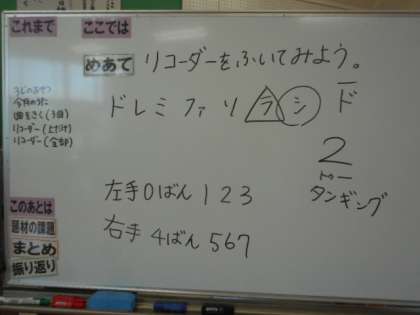 これまで
ここでは
めあて
リコーダーをふいてみよう。
ドレミファソラシド
2
トゥー
タンギング
左手0ばん 1 2 3
右手 4ばん 5 6 7
今月のうた
曲をきく(3回)
リコーダー(上だけ)
リコーダー(全部)
このあとは
題材の課題
まとめ
振り返り